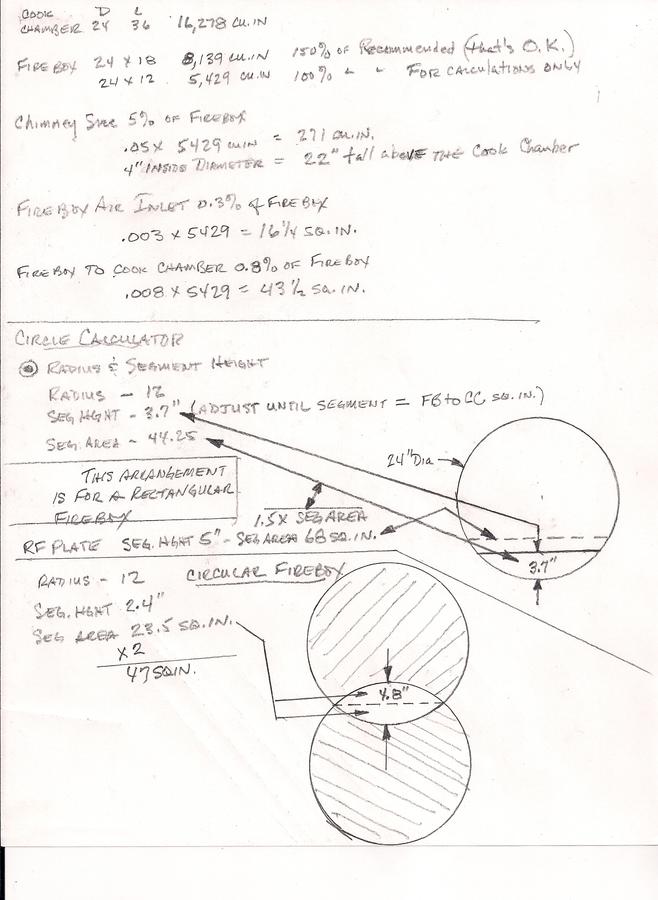 COOK D L
CHAMBER 24 36 16,278 CU.IN
FIREBOX 24 x 18 8,139 CU.IN 150% OF Recommended (that's O.K.)
24 x 12 5,429 CU.IN 100% " " FOR CALCULATIONS ONLY
Chimney Size 5% OF FIREBOX
.05 x 5429 CU IN = 271 CU.IN.
4" INSIDE DIAMETER = 22" tall above THE COOK Chamber
FIREBOX AIR INLET 0.3% of FIREBOX
.003 x 5429 = 16 1/4 SQ.IN.
FIREBOX TO COOK CHAMBER 0.8% OF FIREBOX
.008 x 5429 = 43 1/2 SQ.IN.
CIRCLE CALCULATOR
RADIUS & SEGMENT HEIGHT
RADIUS - 12
SEG HGHT - 3.7" (ADJUST UNTIL SEGMENT = FB to CC SQ.IN.)
SEG. AREA - 44.25
24" Dia
THIS ARRANGEMENT
IS FOR A RECTANGULAR
FIREBOX
1.5X SEG AREA
RF PLATE SEG. HGHT 5" - SEG AREA 68 SQ.IN.
3.7"
RADIUS - 12 CIRCULAR FIREBOX
SEG. HGHT 2.4"
SEG AREA 23.5 SQ.IN.
x 2
47 SQIN.
4.8"